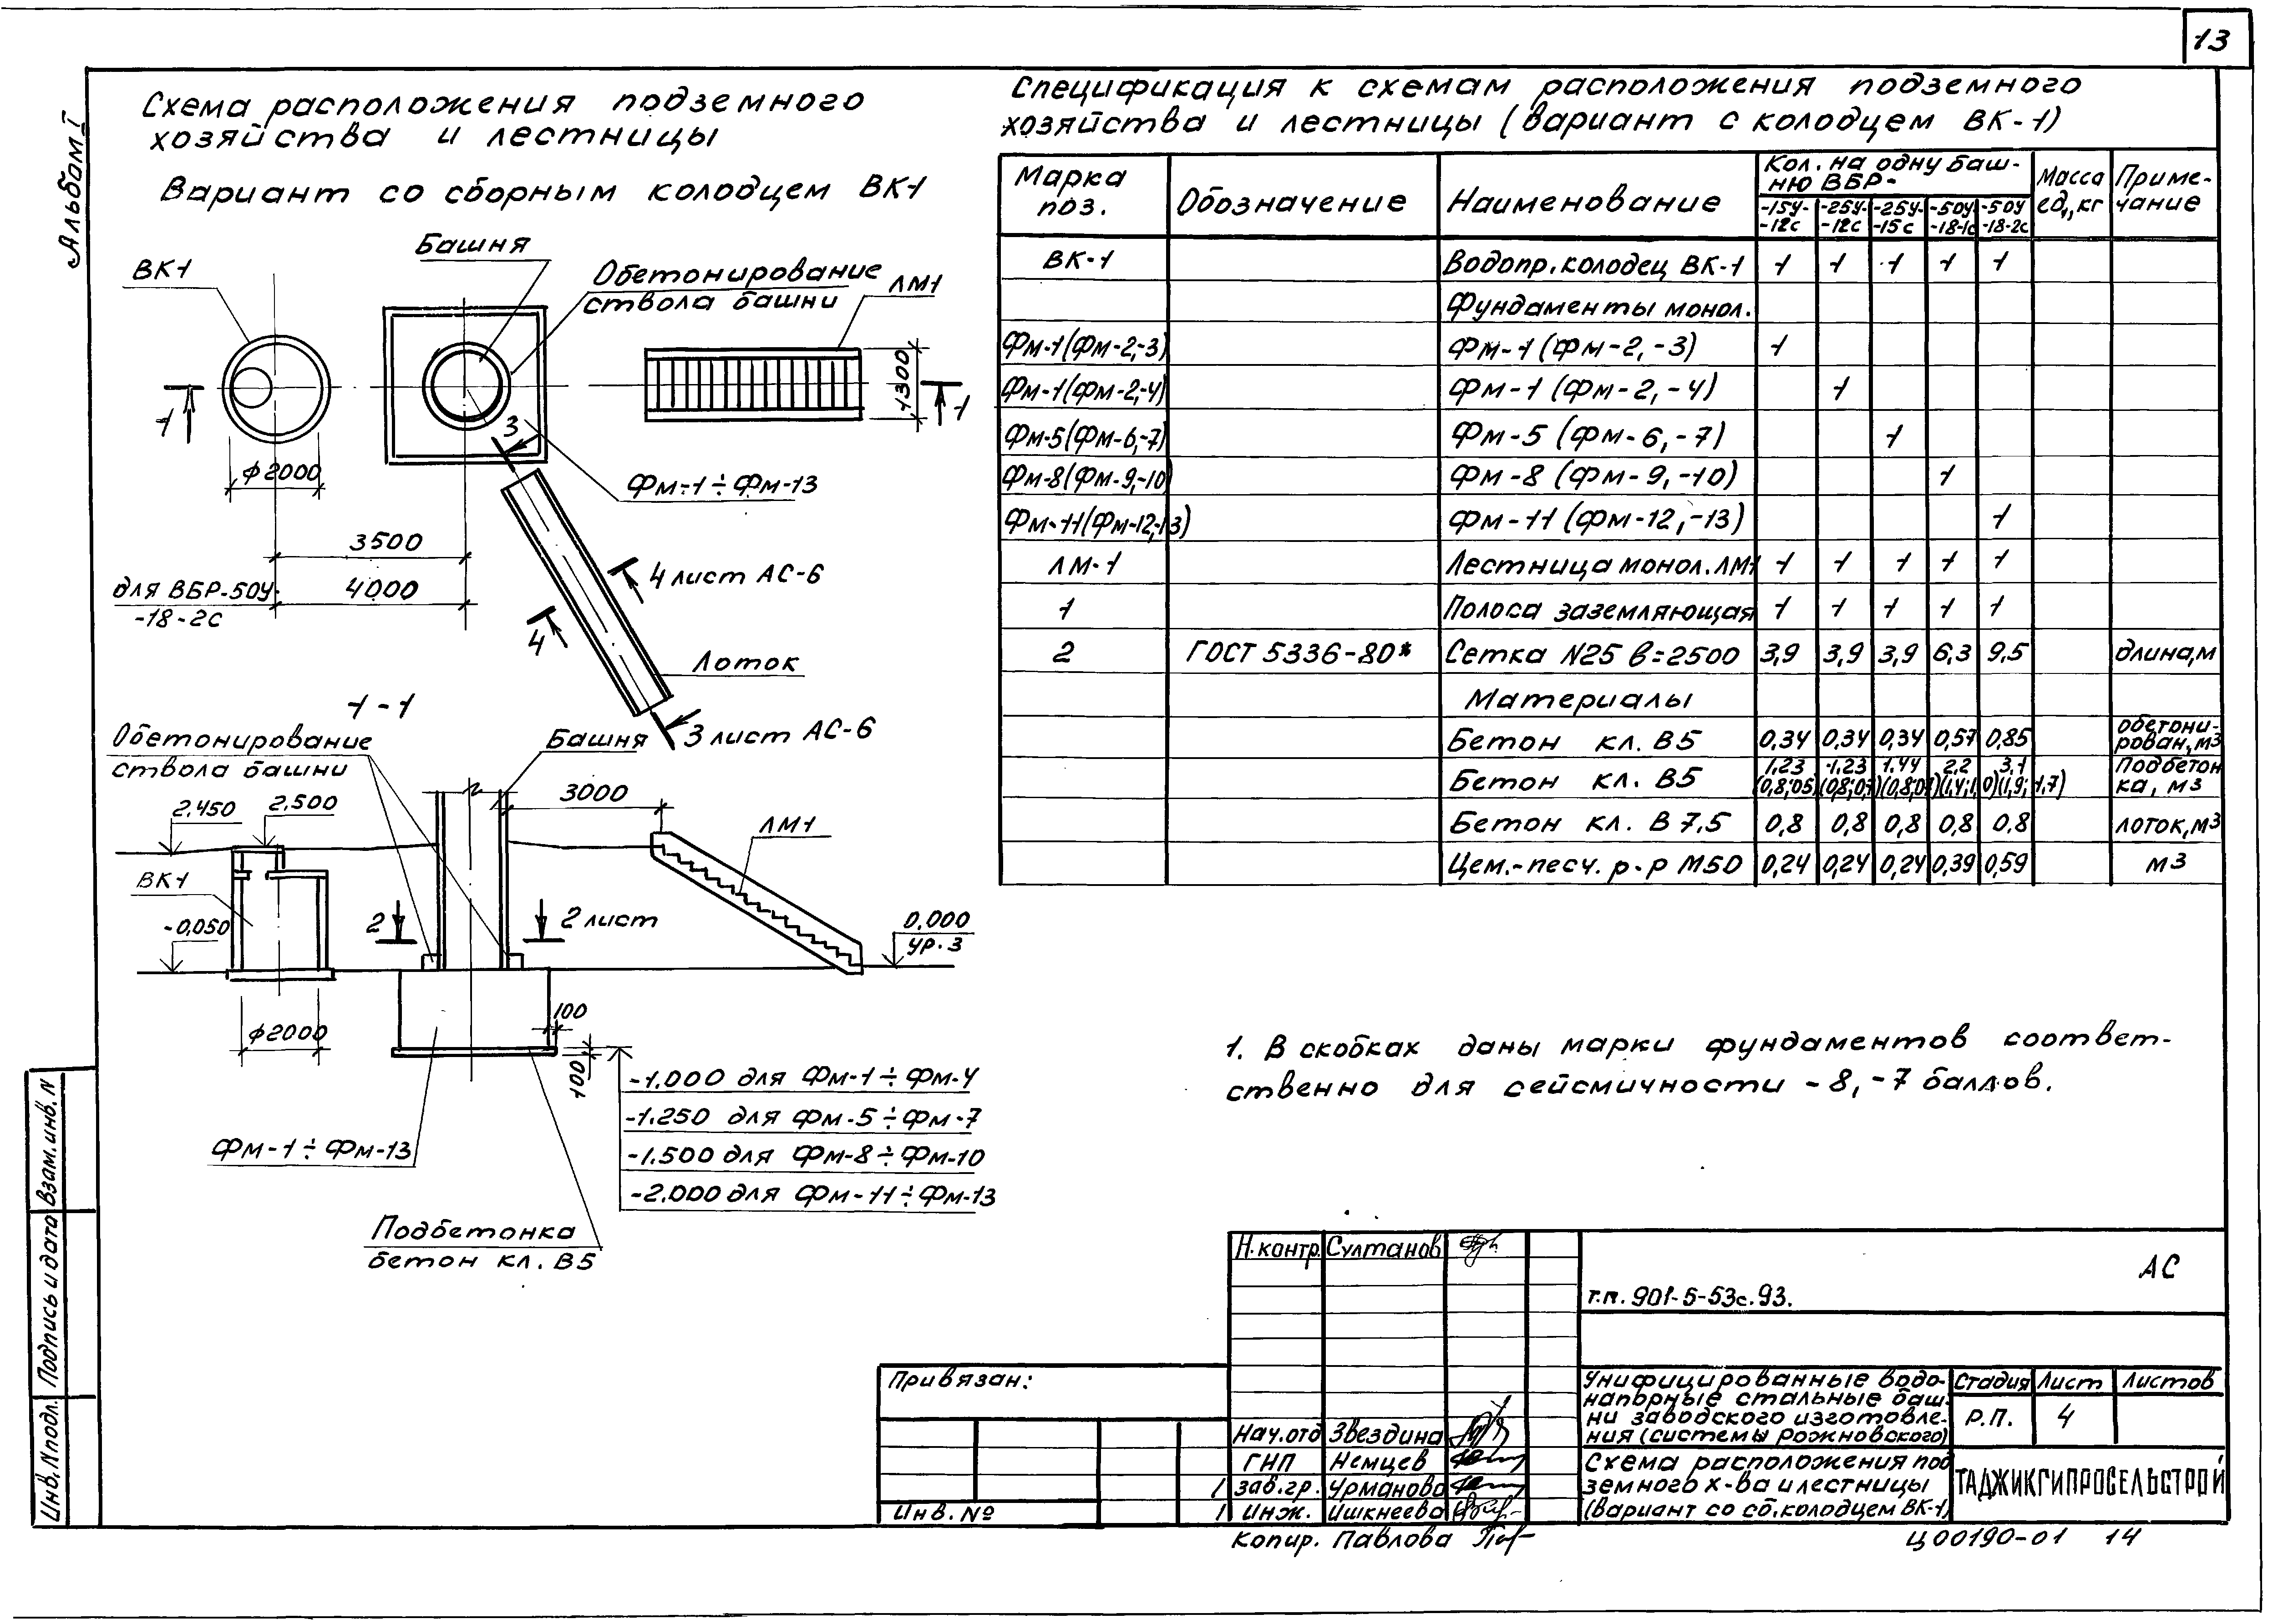 13
Альбом I
Схема расположения подземного
хозяйства и лестницы
Вариант со сборным колодцем ВК-1
Башня
ВК-1
Обетонирование
ствола башни
ЛМ1
1300
1
1
3
ф2000
Фм-1÷Фм-13
3500
4000
для ВБР-50У-
-18-2с
4 лист АС-6
4
Лоток
3 лист АС-6
1-1
Обетонирование
ствола башни
Башня
2,450
2,500
3000
ЛМ1
ВК1
-0,050
2
2 лист
0,000
ур.з
ф2000
100
100
-1.000 для Фм-1÷Фм-4
-1.250 для Фм-5÷Фм-7
-1.500 для Фм-8÷Фм-10
-2.000 для Фм-11÷Фм-13
Фм-1÷Фм-13
Подбетонка
бетон кл. В5
Спецификация к схемам расположения подземного
хозяйства и лестницы (вариант с колодцем ВК-1)
Марка поз. Обозначение Наименование Кол. на одну баш-ню ВБР- Масса ед., кг Приме-чание
-15У-12с -25У-12с -25У-15с -50У-18-1с -50У-18-2с
ВК-1 Водопр. колодец ВК-1 1 1 1 1 1
Фундаменты монол.
Фм-1(Фм-2,-3) Фм-1 (Фм-2, -3) 1
Фм-1(Фм-2,-4) Фм-1 (Фм-2, -4) 1
Фм-5(Фм-6,-7) Фм-5 (Фм-6, -7) 1
Фм-8(Фм-9,-10) Фм-8 (Фм-9, -10) 1
Фм-11(Фм-12,-13) Фм-11 (Фм-12, -13) 1
ЛМ-1 Лестница монол. ЛМ-1 1 1 1 1 1
1 Полоса заземляющая 1 1 1 1 1
2 ГОСТ 5336-80* Сетка N25 в=2500 3,9 3,9 3,9 6,3 9,5 длина, м
Материалы
Бетон кл. В5 0,34 0,34 0,34 0,57 0,85 обетони-рован, м3
Бетон кл. В5 1,23 1,23 1,44 2,2 3,1 Подбетон
ка, м3
Бетон кл. В 7,5 0,8 0,8 0,8 0,8 0,8 лоток, м3
Цем.-песч. р-р М50 0,24 0,24 0,24 0,39 0,59 м3
1. В скобках даны марки фундаментов соответ-
ственно для сейсмичности -8, -7 баллов.
Инв. N подл. Подпись и дата Взам. инв. N
Н.контр. Султанов
АС
т.п. 901-5-53с.93.
Привязан:
Инв. №
Нач.отд Звездина
ГИП Немцев
зав.гр. Урманова
Инж. Ишкнеева
Унифицированные водо-
напорные стальные баш-
ни заводского изготовле-
ния (системы Рожновского)
Стадия Лист Листов
Р.П. 4
Схема расположения под
земного х-ва и лестницы
(вариант со сб. колодцем ВК-1)
ТАДЖИКГИПРОСЕЛЬСТРОЙ
Копир. Павлова
Ц00190-01 14